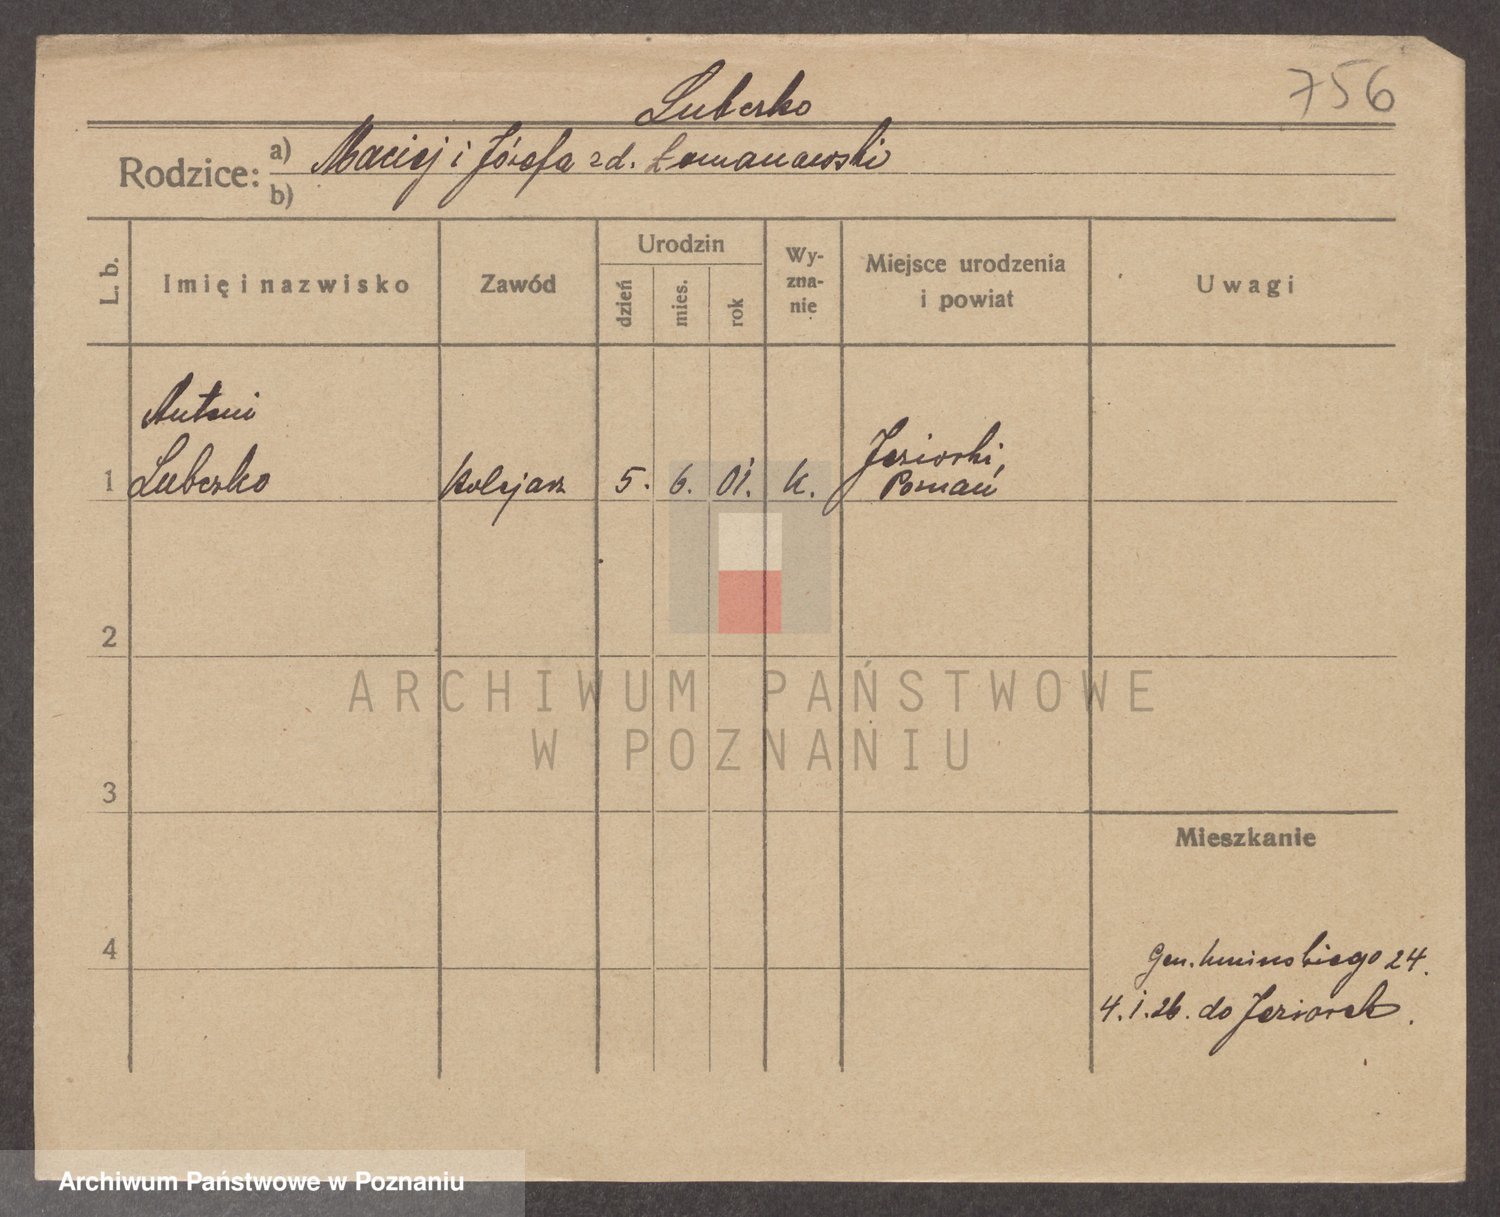 756
Luberko
Rodzice: a) Maciej i Józefa zd. Łomanowski
b)
L. b.
Imię i nazwisko
Zawód
Urodzin
dzień
mies.
rok
Wy-
zna-
nie
Miejsce urodzenia
i powiat
Uwagi
Antoni
1 Luberko Kolejarz 5. 6. 01. K. Jeziorki,
Poznań
2
3
4
Mieszkanie
Gen. 24.
4.1.26. do Jeziorek.
ARCHIWUM PAŃSTWOWE
W POZNANIU
Archiwum Państwowe w Poznaniu